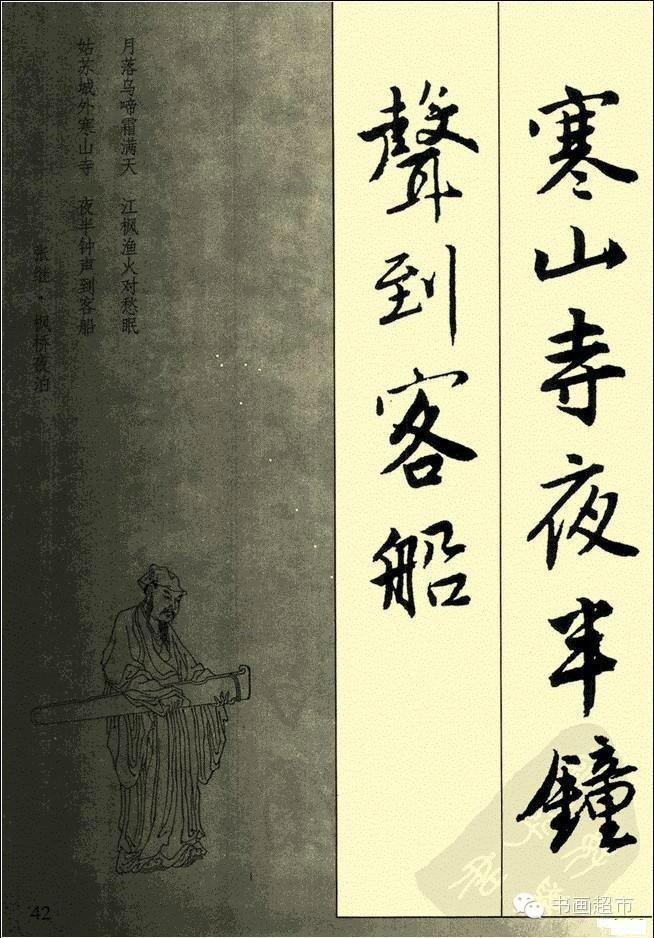 寒山寺夜半鐘
聲到客船
月落乌啼霜满天 江枫渔火对愁眠
姑苏城外寒山寺 夜半钟声到客船
张继·枫桥夜泊
42
书画超市